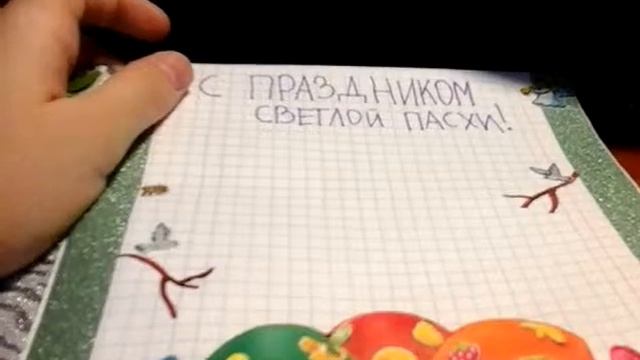 С ПРАЗДНИКОМ
СВЕТЛОЙ ПАСХИ!